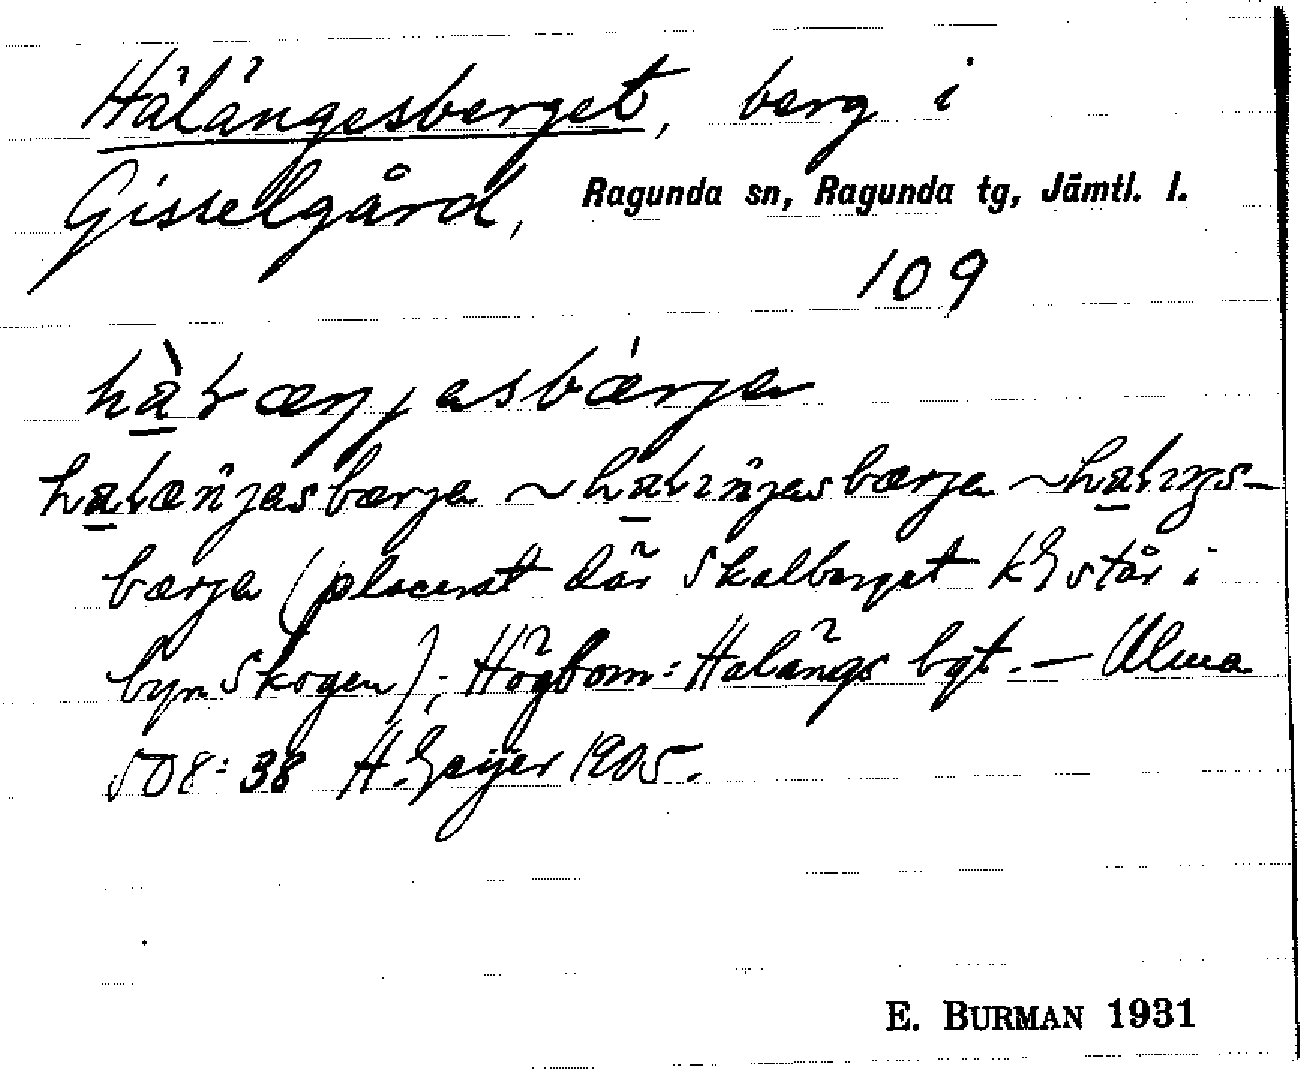 Hälängesberget, berg i
Gisselgård, Ragunda sn, Ragunda tg, Jämtl. l.
109
halæŋjasbærja
halæñjasbærja ~ halıñjasbærja ~ halıŋs-
bærja (placerat där Skalberget KG står i
byn Skogen); Högbom: Halängs bgt. — Alma
508:38 H. Geijer 1905.
E. BURMAN 1931